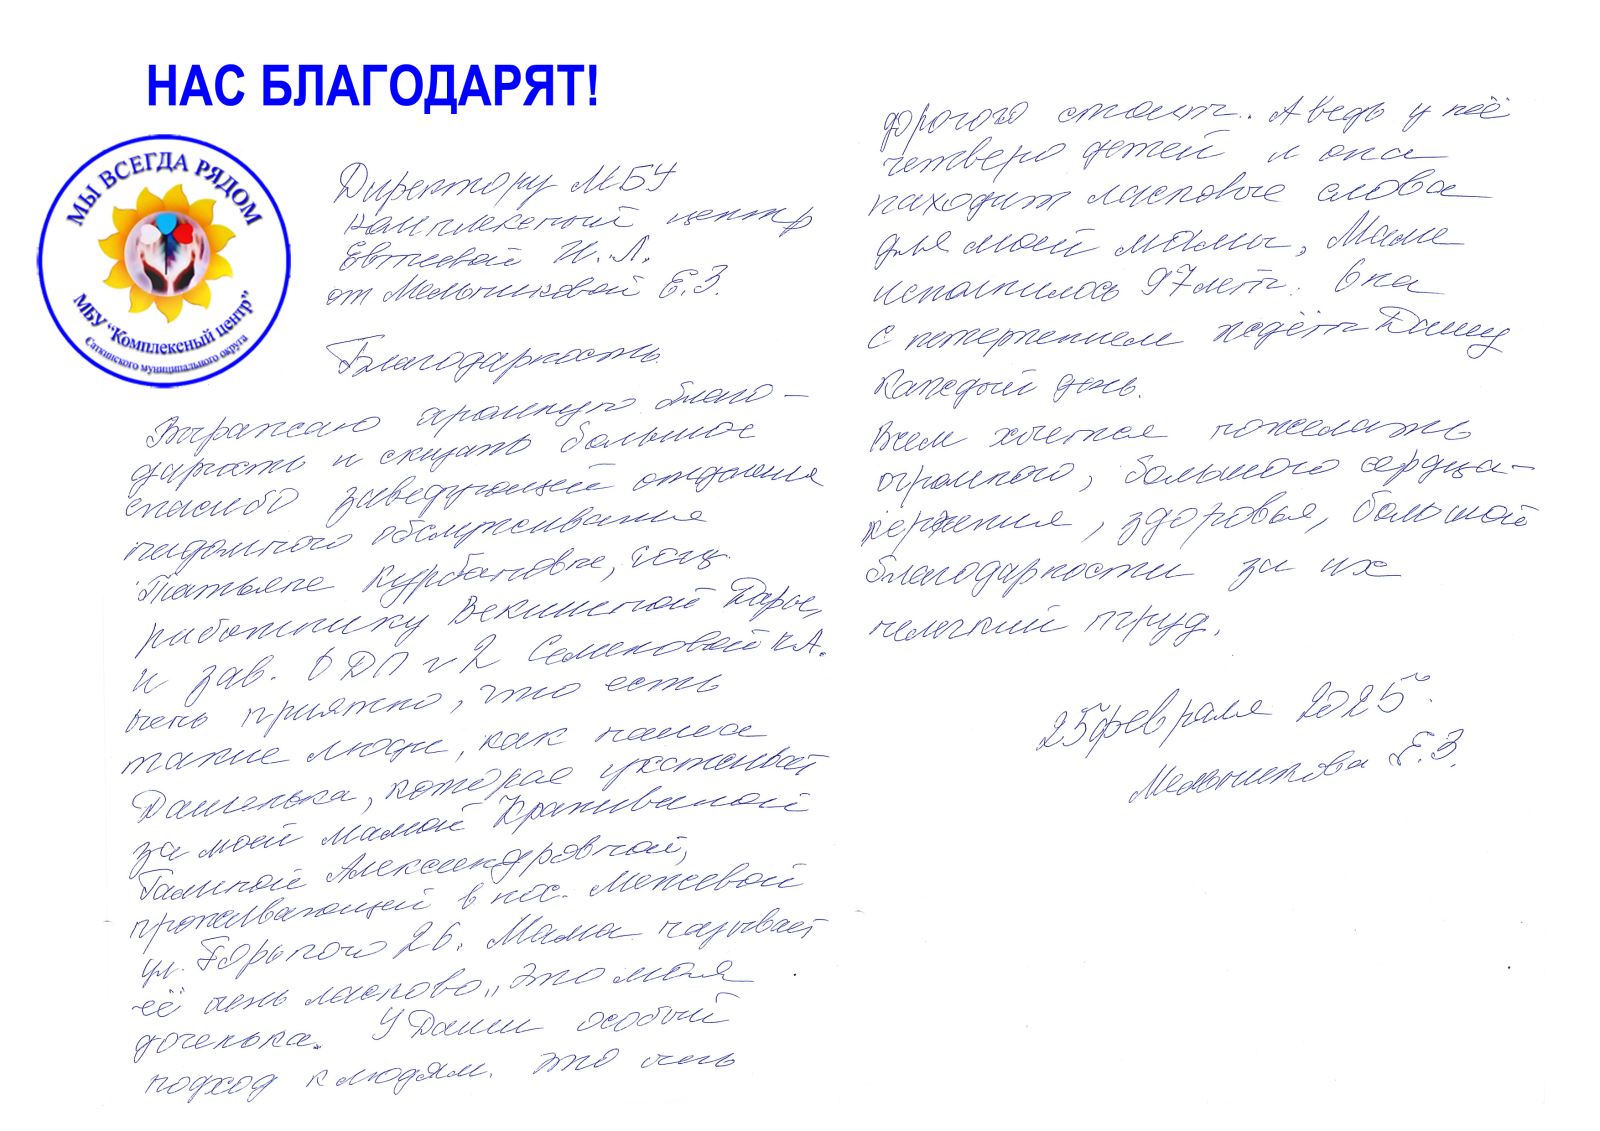 НАС БЛАГОДАРЯТ!
МЫ ВСЕГДА РЯДОМ
МБУ "Комплексный центр"
Саткинского муниципального округа
Директору МБУ
комплексный центр
Евтеевой И. Л.
от Мельниковой Е.З.
Благодарность.
Выражаю громную благо-
дарность и сказать большое
спасибо заведующей отделения
надомного обслуживания
Татьяне Курбановне, соц.
работнику Векшиной Дарье,
и зав. ОДП №2 Семеновой К.А.
очень приятно, что есть
такие люди, как наша
Дашенька, которая ухаживает
за моей мамой Крапивиной
Галиной Александровной,
проживающей в пос. Межевой
ул. Горького 26. Мама называет
её очень ласково „это моя
доченька. У Даши особый
подход к людям. Это очень
дорогого стоит. А ведь у неё
четверо детей и она
находит ласковые слова
для моей мамы, Маме
исполнилось 97 лет. Она
с нетерпением ждёт Дашу
каждый день.
Всем хочется пожелать
огромного, большого сердца-
терпения, здоровья, большой
благодарности за их
нелегкий труд.
25 февраля 2025г.
Мельникова Е.З.